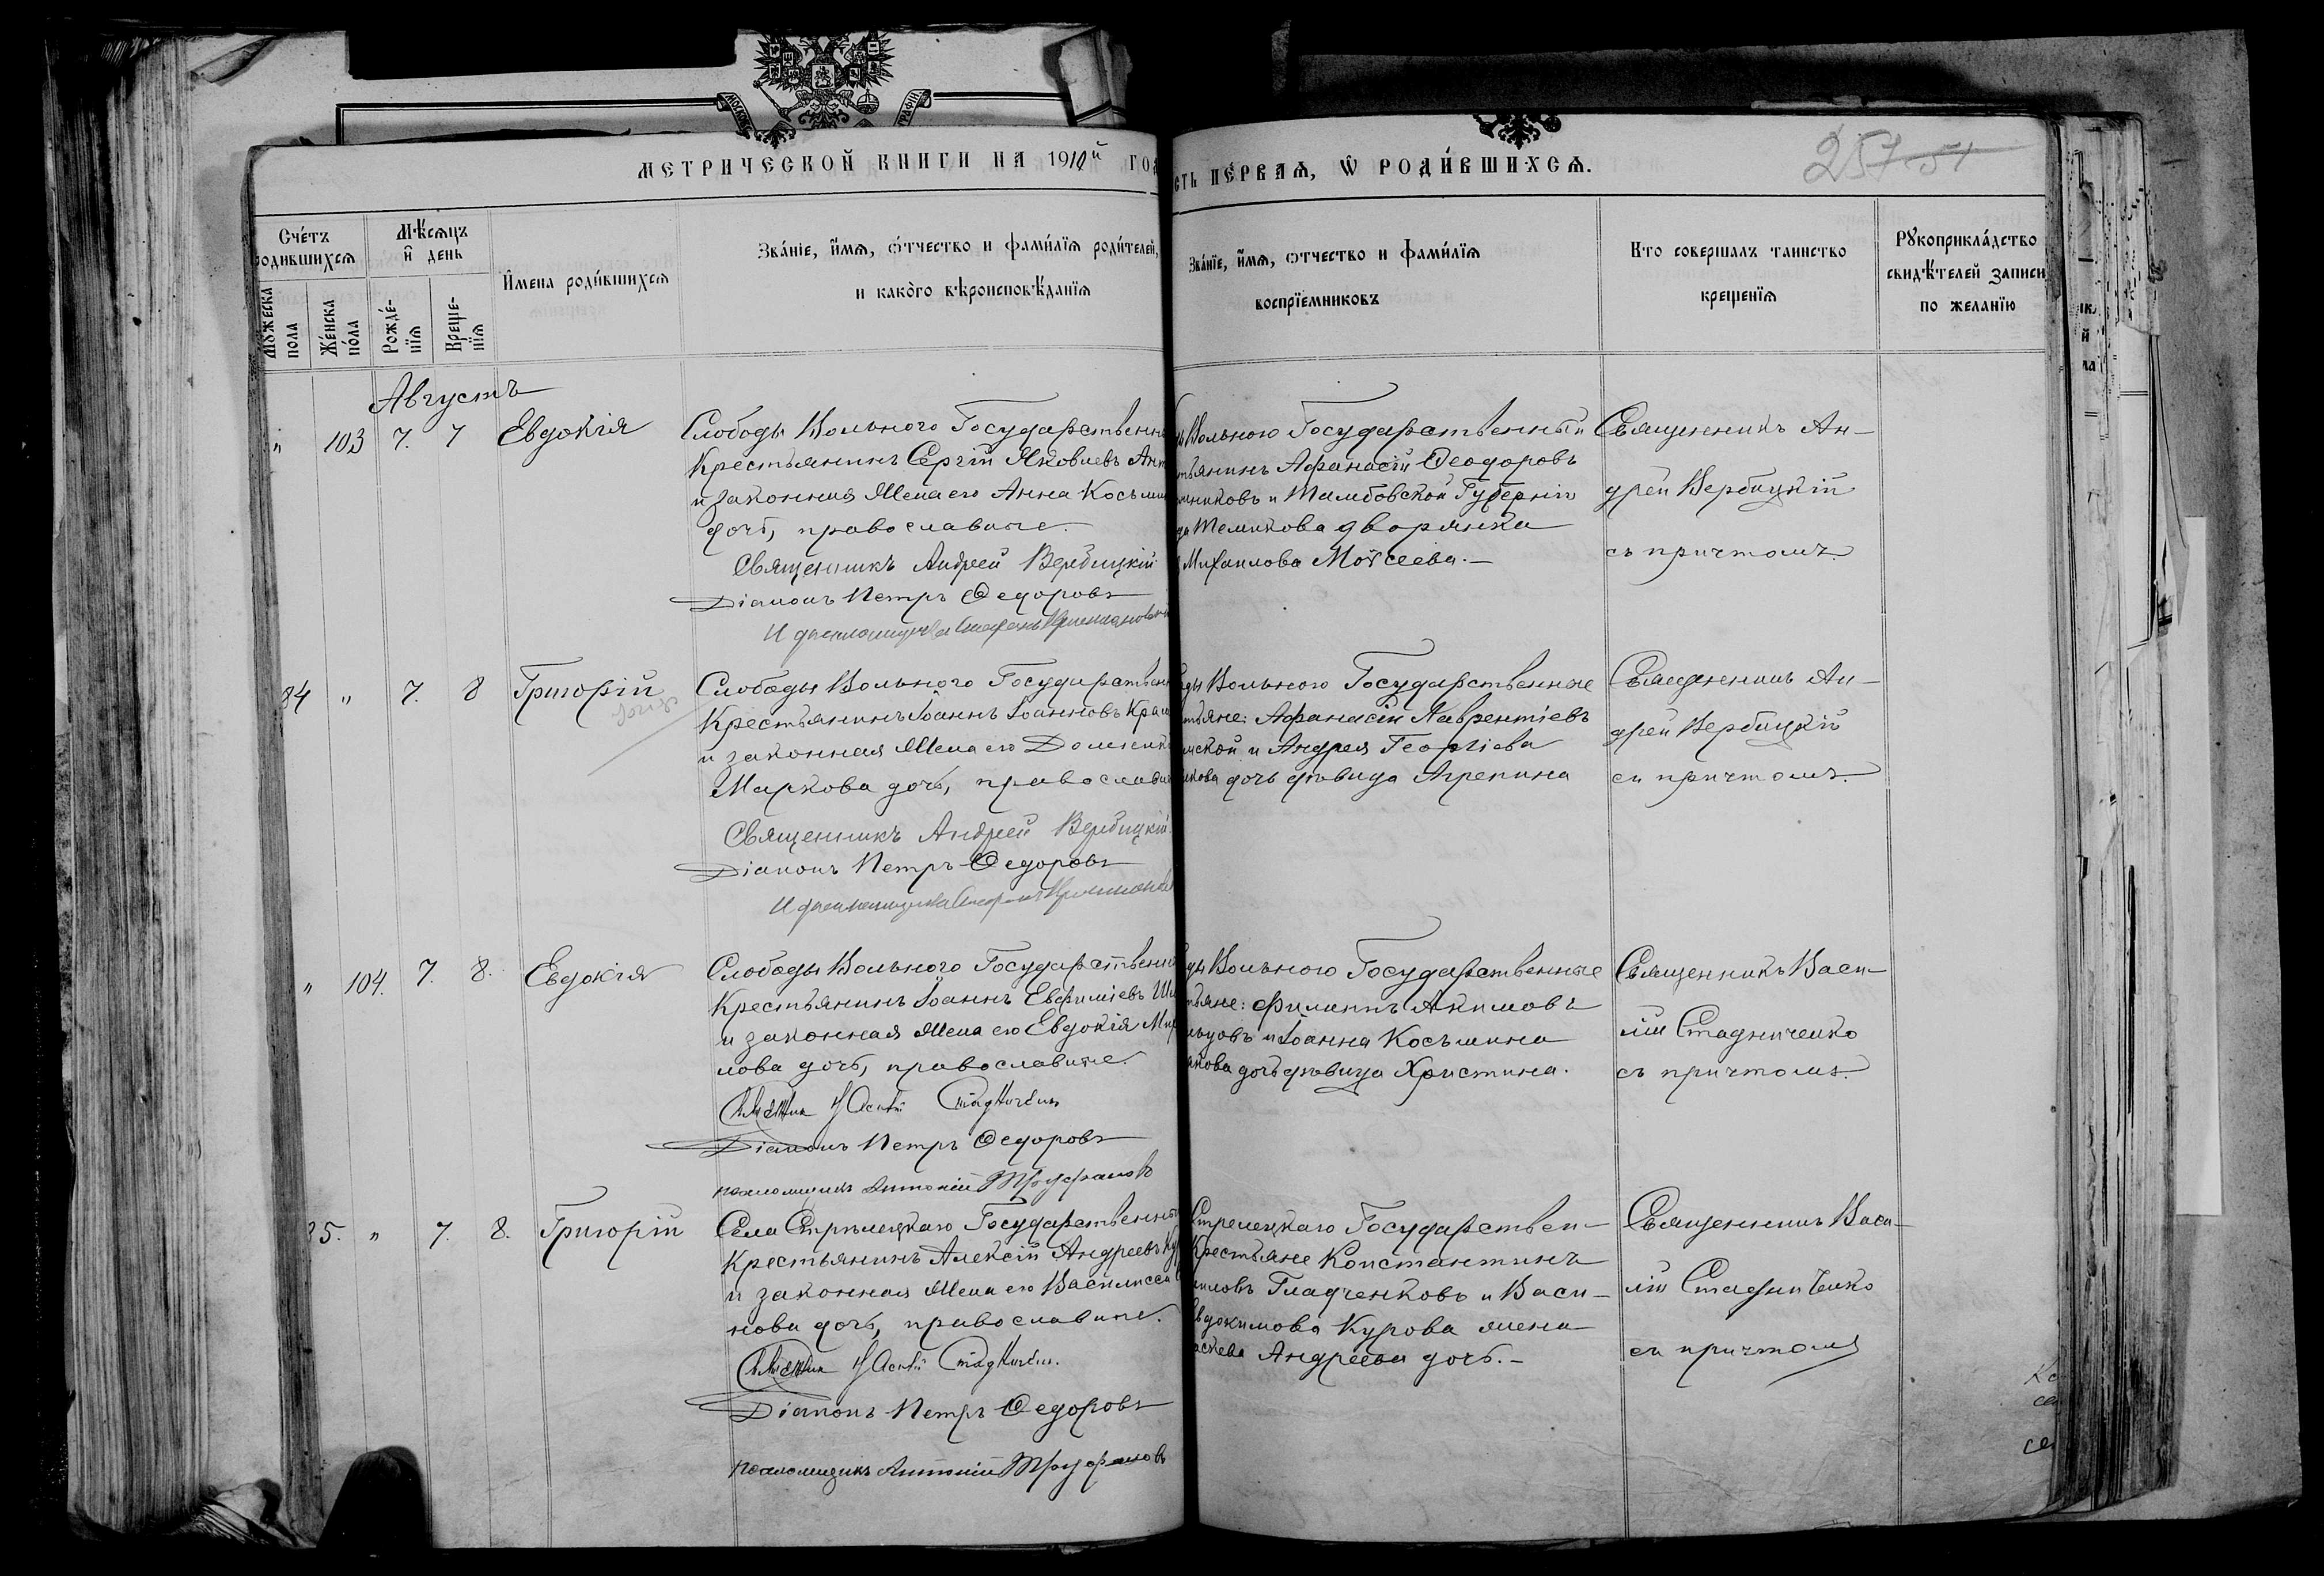 МЕТРИЧЕСКОЙ КНИГИ НА 1910й ГО
СТЬ ПЕ́РВАѦ, Ѿ РОДИ́ВШИХСѦ.
257
51
Сче́тъ
родившихсѧ
Мꙋжеска
пола
Же́нска
по́ла
Мѣ́сѧцъ
и҆ день
Рожде́-
нїѧ
Креще-
нїѧ
И҆мена роди́вшихсѧ
Зва́нїе, и҆́мѧ, ѻ҆́тчество и фами́лїѧ роди́телей,
и како́го вѣроисповѣ́данїѧ
Зва́нїе, и҆́мѧ, ѻтчество и фами́лїѧ
воспрїемниковъ
Кто совершалъ таинство
крещенїѧ
Рꙋкоприкла́дство
свидѣ́телей записи
по желанїю
Августъ
" 103 7. 7 Евдокія
Слободы Вольного Государственн
Крестьянинъ Сергій Яковлевъ Ант
и законная жена его Анна Косьми
дочь, православные.
Священникъ Андрей Вербицкій
Діаконъ Петръ Федоровъ
Вольного Государственный
тьянинъ Афанасій Феодоровъ
никовъ и Тамбовской Губерніи
Темникова дворянка
Михаилова Моѵсеева. —
Священникъ Ан-
дрей Вербицкій
съ причтомъ.
84 " 7. 8 Григорій
Слободы Вольного Государствен
Крестьянинъ Іоаннъ Іоанновъ Крам
и законная жена его Домник
Маркова дочь, православн
Священникъ Андрей Вербицкій
Діаконъ Петръ Федоровъ
ды Вольного Государственные
тьяне: Афанасій Лаврентіевъ
ской и Андрея Георгіева
кова дочь дѣвица Агрепина
Священникъ Ан-
дрей Вербицкій
съ причтомъ.
" 104. 7. 8. Евдокія
Слободы Вольного Государственн
Крестьянинъ Іоаннъ Евфиміевъ Ши
и законная жена его Евдокія Ми
лова дочь, православные.
Діаконъ Петръ Федоровъ
псаломщикъ Антоній Труфановъ
ды Вольного Государственные
тьяне: Филиппъ Акимовъ
цовъ и Іоанна Косьмина
кова дочь дѣвица Христина.
Священникъ Васи-
лій Стадниченко
съ причтомъ.
85. " 7. 8. Григорій
Села Стрѣлецкаго Государственны
Крестьянинъ Алексій Андреевъ Ку
и законная жена его Василисса
нова дочь, православные.
Діаконъ Петръ Федоровъ
псаломщикъ Антоній Труфановъ
Стрелецкаго Государствен-
Крестьяне Константинъ
иловъ Гладченковъ и Васи-
вдокимова Курова жена
Андреева дочь. —
Священникъ Васи-
лій Стадниченко
съ причтомъ